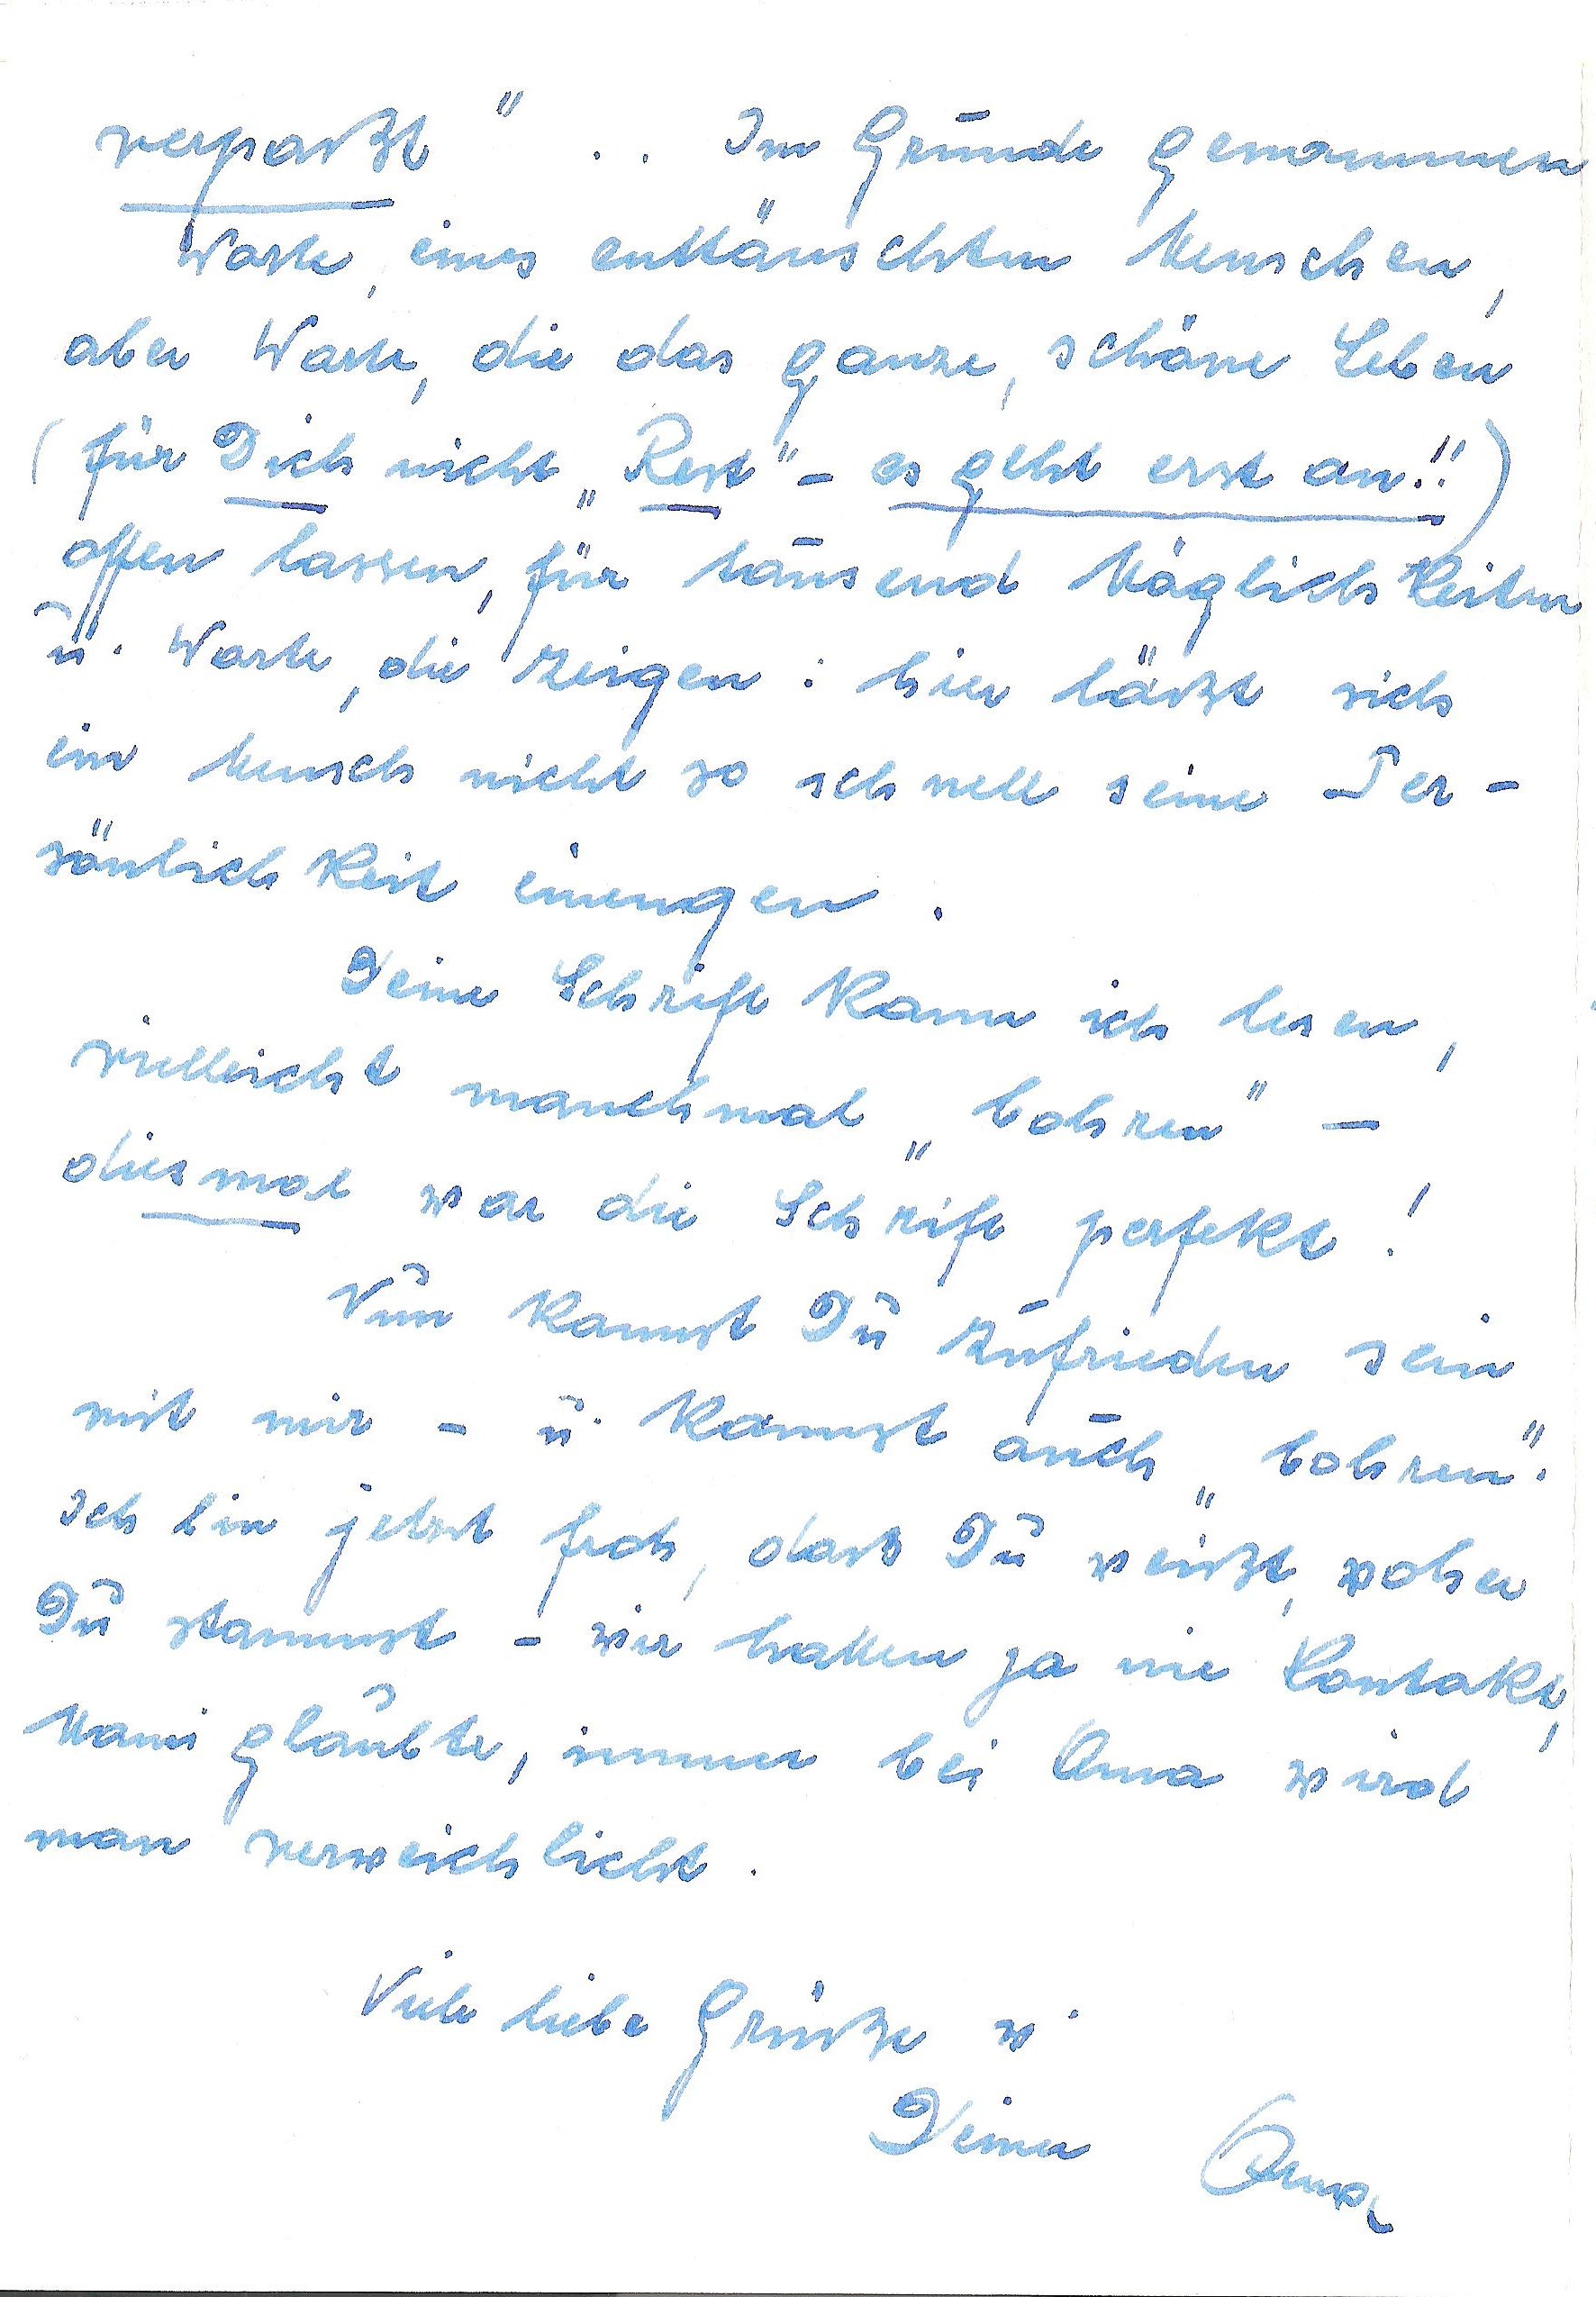 verpaßt" .. Im Grunde genommen
Worte, eines enttäuschten Menschen,
aber Worte, die das ganze, schöne Leben
(für Dich nicht „Rest" - es geht erst an!!)
offen lassen, für tausend Möglichkeiten
u. Worte, die zeigen: hier läßt sich
ein Mensch nicht so schnell seine Per-
sönlichkeit einengen.
Deine Schrift kann ich lesen,
vielleicht manchmal „bohren" -
diesmal war die Schrift perfekt!
Nun kannst Du zufrieden sein
mit mir - u. kannst auch „bohren".
Ich bin jetzt froh, daß Du weißt, woher
Du stammst - wir hatten ja nie Kontakt,
Mami glaubte, immer bei Oma wird
man verweichlicht.
Viele liebe Grüße v.
Deiner Oma